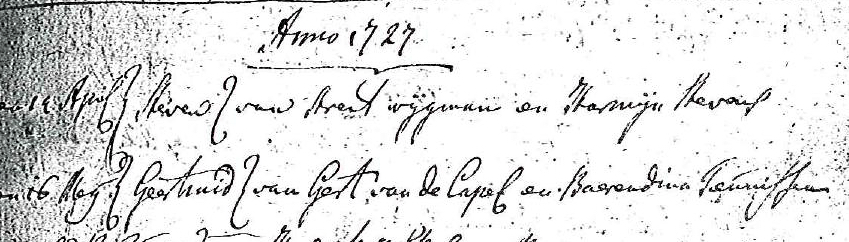 Anno 1727
14 April } Steven } van Arent wÿgman en Harmijn Stevens
16 Meÿ } Geertruid } van Gert van de Capel en Barendina Teunissen